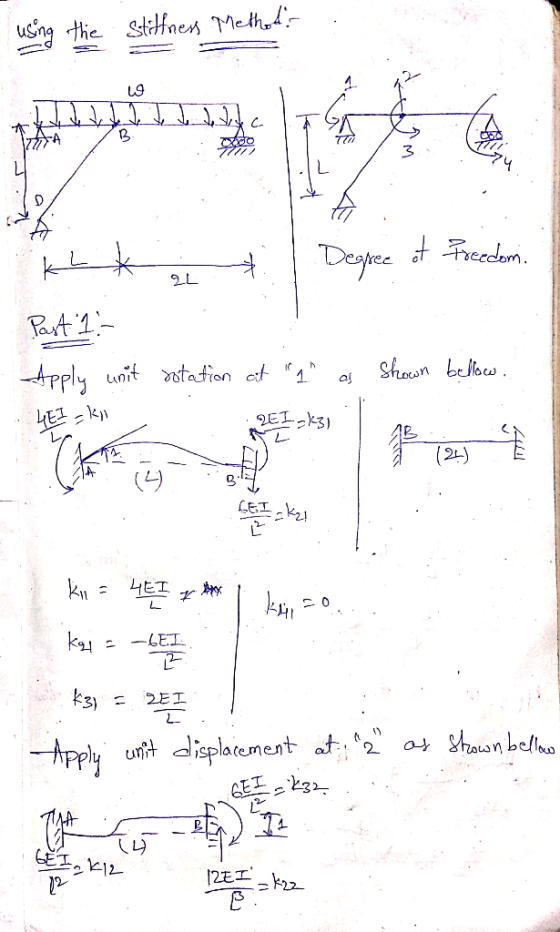 using the Stiffness Method:-
ω
A B C
L
D
L 2L
1 2 3 4
L
Degree of Freedom.
Part '1':-
Apply unit rotation at "1" as shown bellow.
4EI/L = k11
2EI/L = k31
A 1 (L) B
6EI/L² = k21
B C
(2L)
k11 = 4EI/L
k41 = 0.
k21 = -6EI/L²
k31 = 2EI/L
Apply unit displacement at "2" as shown bellow
6EI/L² = k32
A (L) B 1
6EI/L² = k12
12EI/L³ = k22